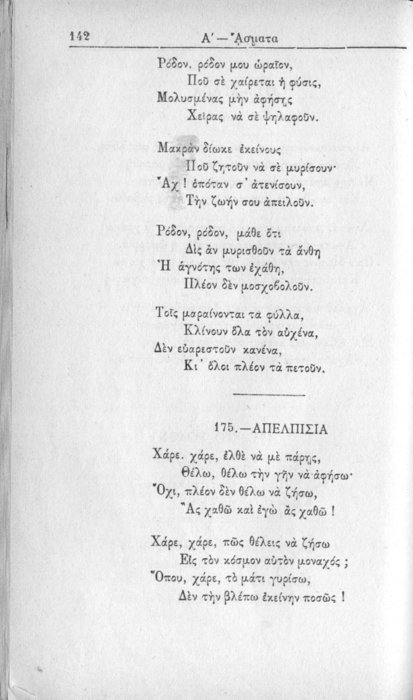 142
Α′ — ᾌσματα
Ρόδον. ρόδον μου ὡραῖον,
Ποῦ σὲ χαίρεται ἡ φύσις,
Μολυσμένας μὴν ἀφήσῃς
Χεῖρας νὰ σὲ ψηλαφοῦν.
Μακρὰν δίωκε ἐκείνους
Ποῦ ζητοῦν νὰ σὲ μυρίσουν·
Ἄχ ! ὁπόταν σ᾽ ἀτενίσουν,
Τὴν ζωήν σου ἀπειλοῦν.
Ρόδον, ρόδον, μάθε ὅτι
Δὶς ἂν μυρισθοῦν τὰ ἄνθη
Ἡ ἁγνότης των ἐχάθη,
Πλέον δὲν μοσχοβολοῦν.
Τοῖς μαραίνονται τα φύλλα,
Κλίνουν ὅλα τὸν αὐχένα,
Δὲν εὐαρεστοῦν κανένα,
Κι᾽ ὅλοι πλέον τὰ πετοῦν.
175.—ΑΠΕΛΠΙΣΙΑ
Χάρε. χάρε, ἐλθὲ νὰ μὲ πάρῃς,
Θέλω, θέλω τὴν γῆν νὰ ἀφήσω·
Ὄχι, πλέον δὲν θέλω νὰ ζήσω,
Ἂς χαθῶ καὶ ἐγὼ ἂς χαθῶ !
Χάρε, χάρε, πῶς θέλεις νὰ ζήσω
Εἰς τὸν κόσμον αὐτὸν μοναχός ;
Ὅπου, χάρε, τὸ μάτι γυρίσω,
Δὲν τὴν βλέπω ἐκείνην ποσῶς !